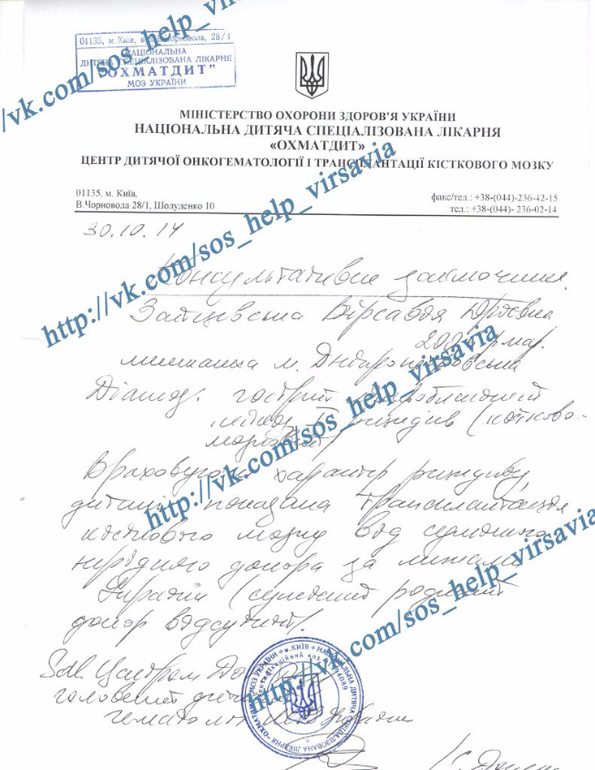 01135, м. Київ, в. Чорновола, 28/1
НАЦІОНАЛЬНА
ДИТЯЧА СПЕЦІАЛІЗОВАНА ЛІКАРНЯ
"ОХМАТДИТ"
МОЗ УКРАЇНИ
МІНІСТЕРСТВО ОХОРОНИ ЗДОРОВ'Я УКРАЇНИ
НАЦІОНАЛЬНА ДИТЯЧА СПЕЦІАЛІЗОВАНА ЛІКАРНЯ
«ОХМАТДИТ»
ЦЕНТР ДИТЯЧОЇ ОНКОГЕМАТОЛОГІЇ І ТРАНСПЛАНТАЦІЇ КІСТКОВОГО МОЗКУ
01135, м. Київ,
В.Чорновола 28/1, Шолуденко 10
факс/тел.: +38-(044)-236-42-15
тел.: +38-(044)- 236-02-14
30.10.14
Консультативне заключення
Вірсавія
мешканка м.
Діагноз: гострий лімфобластний
рецидив (кістково-
Враховуючи характер рецидиву,
дитині показана трансплантація
кісткового мозку від сумісного
нерідного донора за межами
України (сумісний родинний
донор відсутній).
Зав. Центром
головний дитячий
гематолог
http://vk.com/sos_help_virsavia
http://vk.com/sos_help_virsavia
http://vk.com/sos_help_virsavia
http://vk.com/sos_help_virsavia
http://vk.com/sos_help_virsavia